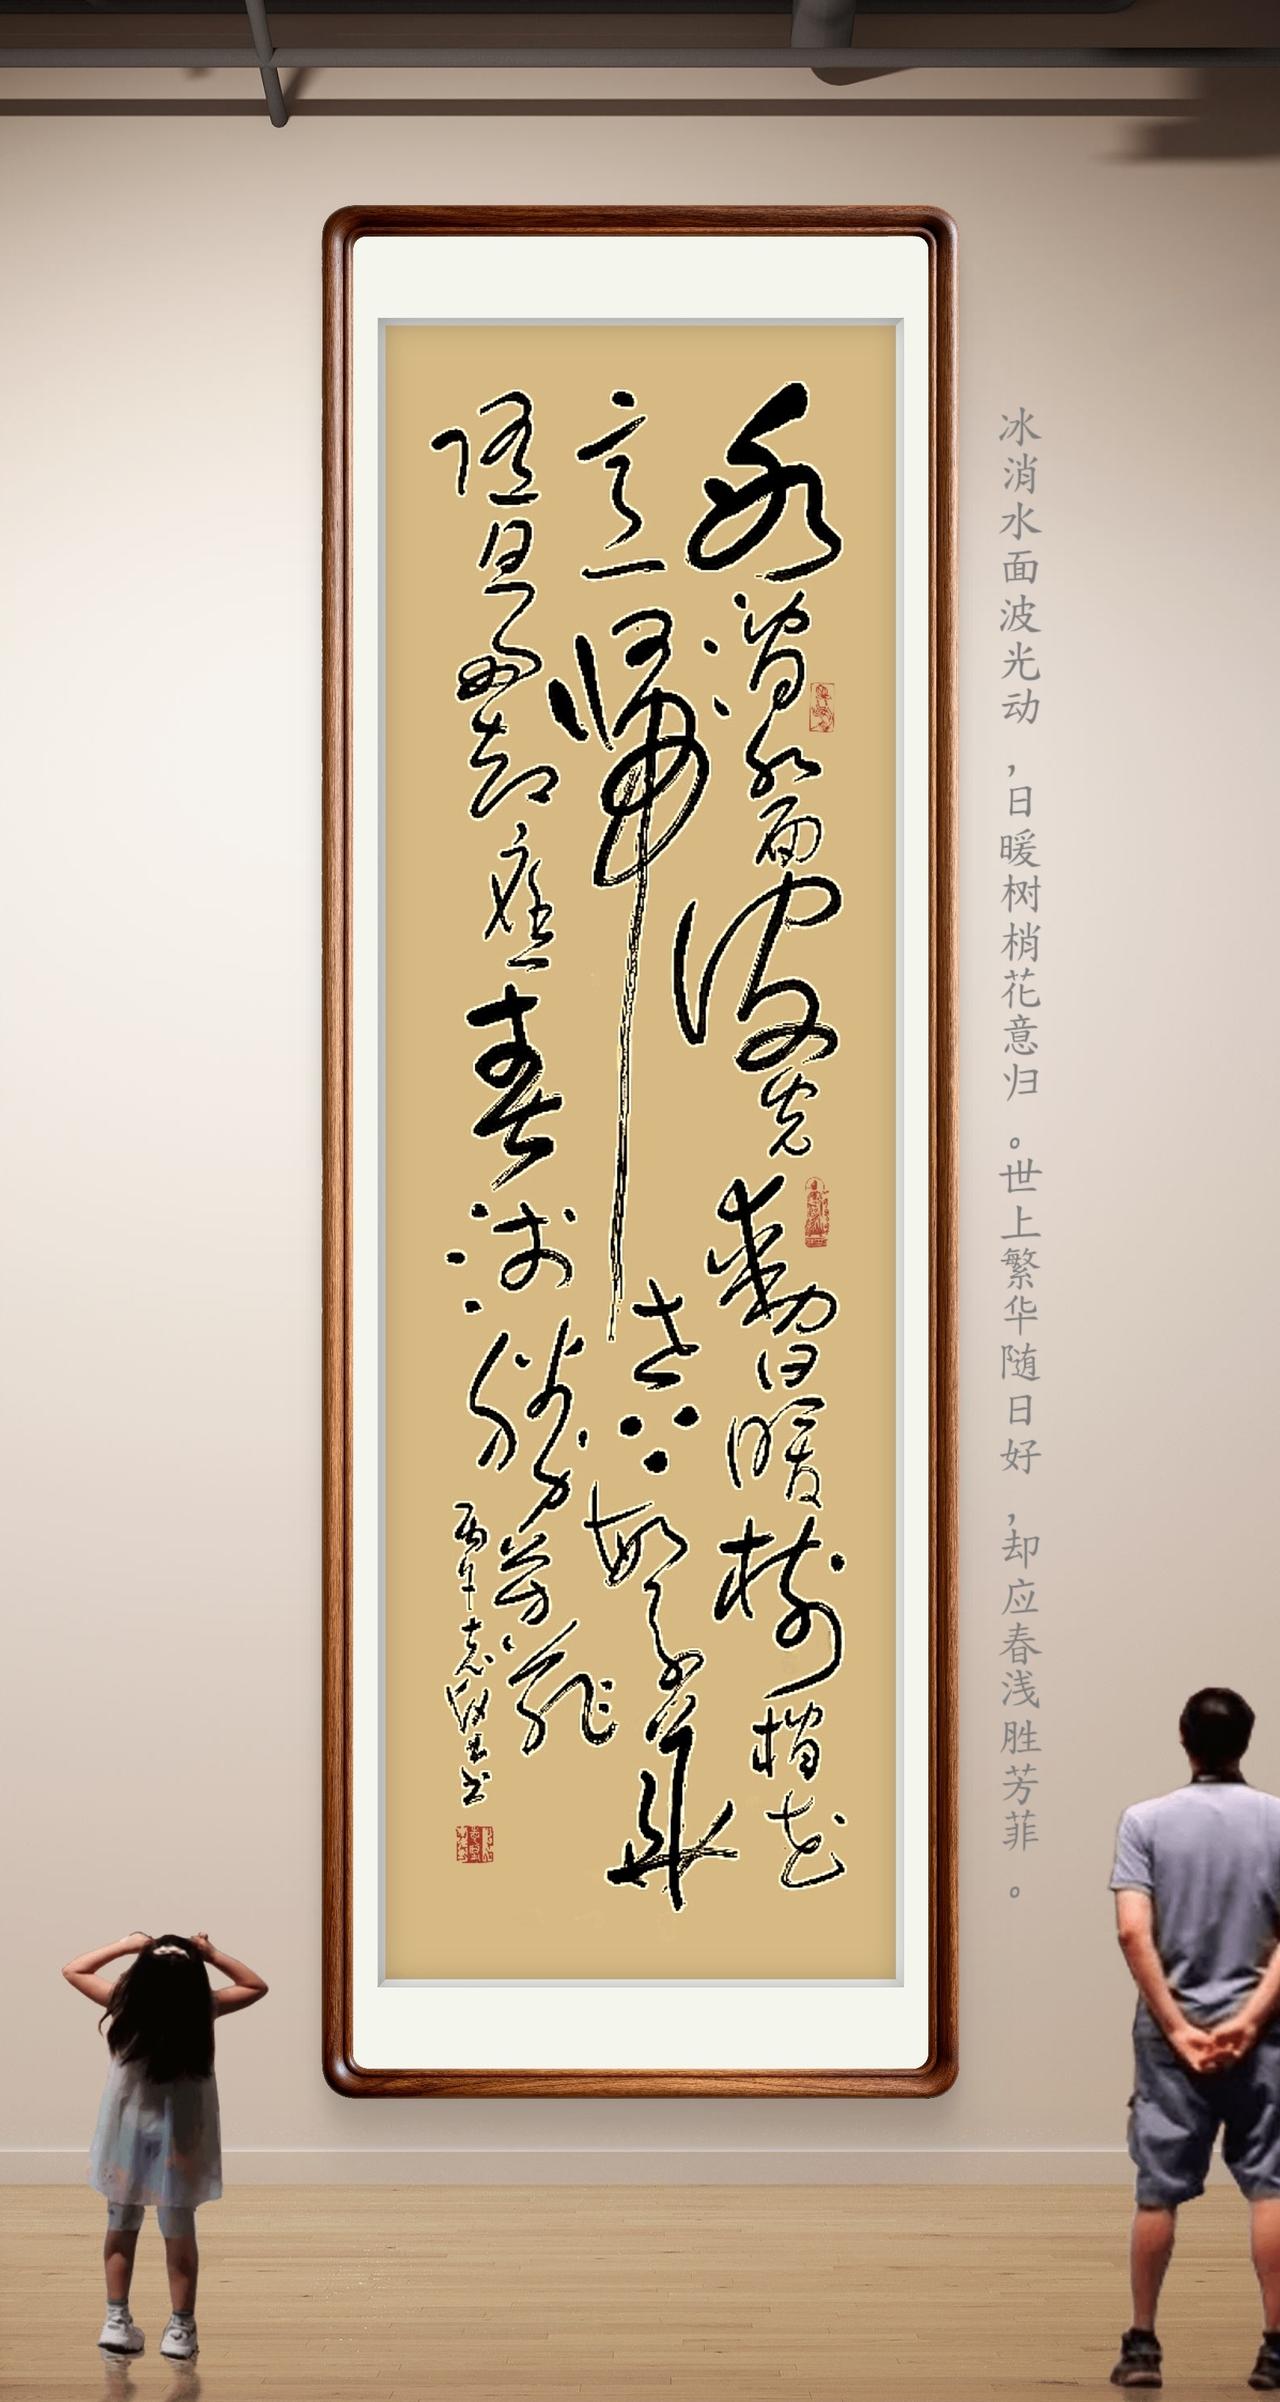 冰消水面波光动，日暖树梢花意归。世上繁华随日好，却应春浅胜芳菲。
氷消水面波光動日暖樹梢花
意歸世上繁華
隨日好却應春淺勝芳菲
丙午志书